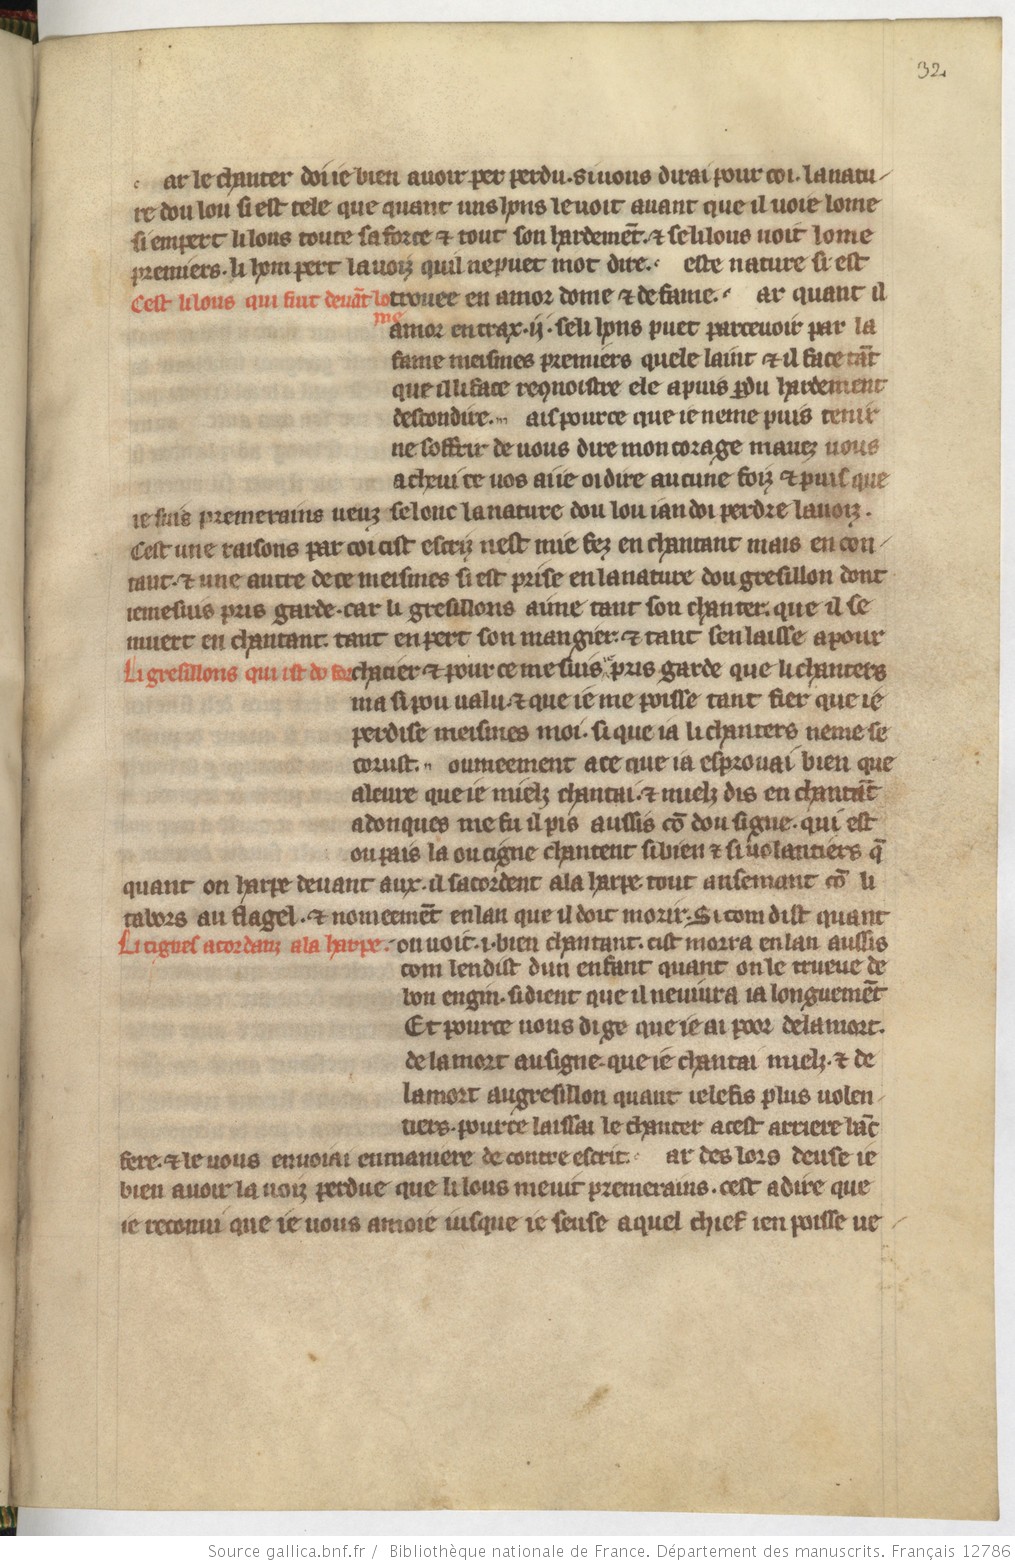 32
ar le chanter doi ie bien auoir per perdu. si uous dirai pour coi. la natu-
re dou lou si est tele que quant uns hons le uoit auant que il uoie lome
si empert li lous toute sa force & tout son hardemēt. & se li lous uoit lome
premiers. li hom pert la uoiz quil ne puet mot dire. este nature si est
Cest li lous qui fuit deuāt lo trouee en amor dome & de fame. ar quant il
me
amor entrax .ij. se li hons puet parceuoir par la
fame meismes premiers quele laint & il face tāt
que il li face reqnoistre ele a puis ꝑdu hardement
descondire. ais pource que ie ne me puis tenir
ne soffrir de uous dire mon corage mauez uous
a cheui ce uos aije oi dire aucune foiz & puis que
ie suis premerains ueuz selonc la nature dou lou ian doi perdre la uoiz.
Cest une raisons par coi cist escriz nest mie fez en chantant mais en con-
tant. & une autre de ce meismes si est prise en la nature dou gresillon dont
ie me suis pris garde. car li gresillons aime tant son chanter. que il se
muert en chantant. tant en pert son mangier. & tant sen laisse a pour
Li gresillons qui ist do for chacier & pour ce me suis pris garde que li chanters
ma si pou ualu. & que ie me poisse tant fier que ie
perdise meismes moi. si que ia li chanters ne me se
corust. oumeement a ce que ia esprouai bien que
a leure que ie mielz chantai. & mielz dis en chantāt
adonques me fu il pis aussis cō dou signe. qui est
ou pais la ou cigne chantent si bien & si uolantiers q̄
quant on harpe deuant aux. il sacordent a la harpe. tout ansemant cō li
tabors au flagel. & nomeemēt en lan que il doit morir. Si com dist quant
Li cignes acordanz a la harpe. on uoit .i. bien chantant. cist morra en lan aussis
com len dist dun enfant quant on le trueue de
bon engin. si dient que il ne uiura ia longuemēt
Et pource uous di ge que ie ai poor de la mort.
de la mort au signe. que ie chantai mielz. & de
la mort au gresillon quant ie le fis plus uolen-
tiers. pource laissai le chanter a cest arriere bāt
fere. & le uous enuoiai en maniere de contre escrit. ar des lors deuse ie
bien auoir la uoiz perdue que li lous me uit premerains. cest a dire que
ie reconui que ie uous amoie iusque ie seuse a quel chief ien poisse ue-
Source gallica.bnf.fr / Bibliothèque nationale de France. Département des manuscrits. Français 12786